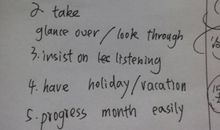 2. take
glance over / look through
3. insist on lec listening
4. have holiday / vacation
5. progress month easily